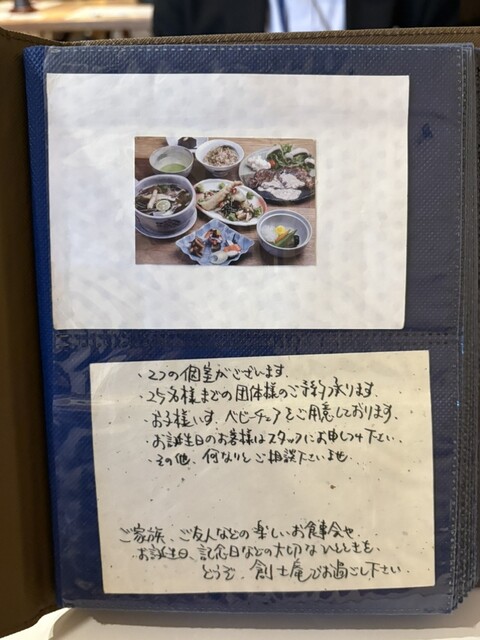 ・2つの個室がございます.
・25名様までの団体様のご予約承ります.
お子様いす、ベビーチェアをご用意しております.
・お誕生日のお客様はスタッフにお申しつけ下さい.
・その他、何なりとご相談下さいませ.
ご家族、ご友人などの楽しいお食事会や
お誕生日、記念日などの大切なひとときを
どうぞ、創士庵でお過ごし下さい.